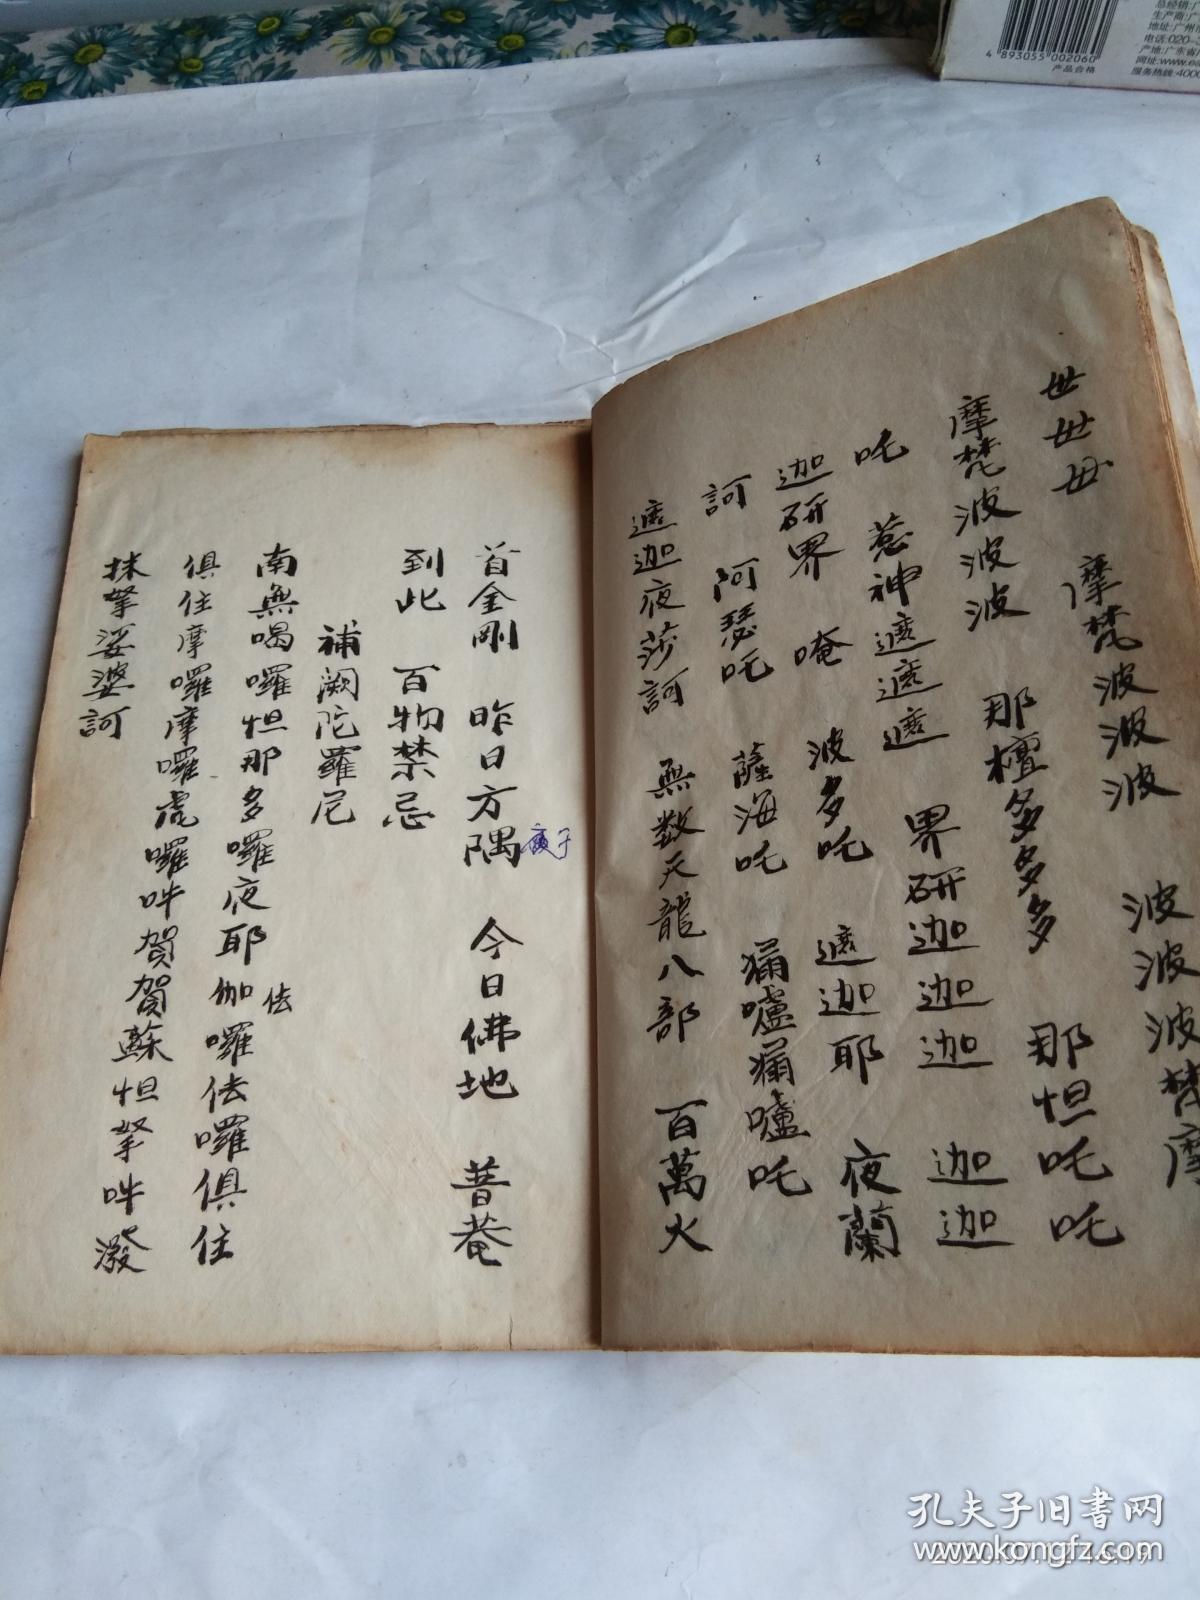 世世世 摩梵波波波 波波波梵摩
摩梵波波波 那檀多多多 那怛吒吒
吒 惹神遮遮遮 界研迦迦迦 迦迦
迦研界 唵 波多吒 遮迦耶 夜蘭
訶 阿瑟吒 薩海吒 漏嚧漏嚧吒
遮迦夜莎訶 無数天龍八部 百萬火
首金剛 昨日方隅 今日佛地 普菴
到此 百物禁忌
補闕陀羅尼
南無喝囉怛那多囉夜耶 佉
伽囉佉囉俱住
俱住摩囉摩囉虎囉吽賀賀蘇怛拏吽潑
抹拏娑婆訶
4 893055 002060
产品合格
总经销:广
生产商:广
地址:广州市
电话:020-3
产地:广东省
服务热线:4000
孔夫子旧书网
www.kongfz.com